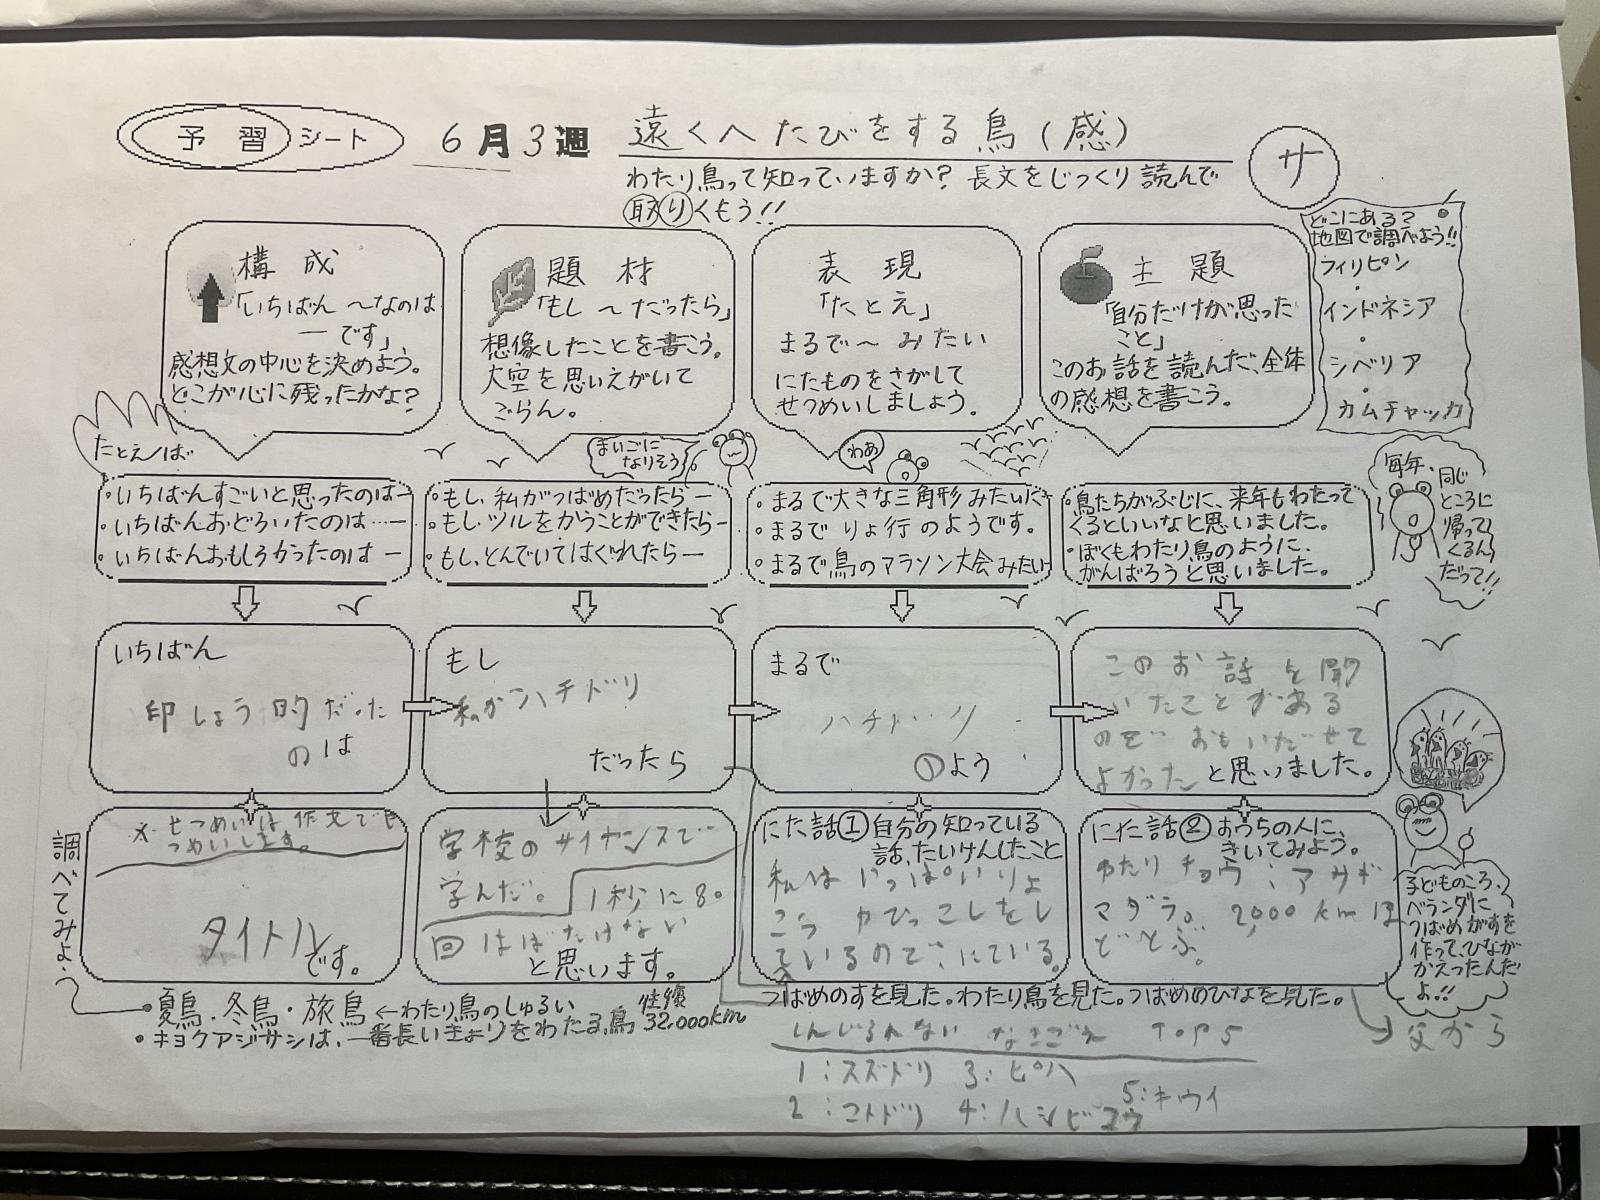 予習シート
6月3週
遠くへたびをする鳥(感)
サ
わたり鳥って知っていますか? 長文をじっくり読んで
取りくもう!!
構成
「いちばん 〜なのは
― です」
感想文の中心を決めよう。
どこが心に残ったかな?
題材
「もし 〜 だったら」
想像したことを書こう。
大空を思いえがいて
ごらん。
表現
「たとえ」
まるで〜みたい
にたものをさがして
せつめいしましょう。
主題
「自分だけが思った
こと」
このお話を読んだ、全体
の感想を書こう。
どこにある?
地図で調べよう!!
フィリピン
・
インドネシア
・
シベリア
・
カムチャッカ
たとえば
・いちばんすごいと思ったのは―
・いちばんおどろいたのは…―
・いちばんおもしろかったのは―
まいごに
なりそう
・もし、私がつばめだったら―
・もしツルをかうことができたら―
・もし、とんでいてはぐれたら―
わあ
・まるで大きな三角形みたいに
・まるでりょ行のようです。
・まるで鳥のマラソン大会みたい
・鳥たちがぶじに、来年もわたって
くるといいなと思いました。
・ぼくもわたり鳥のように、
がんばろうと思いました。
毎年、同じ
ところに
帰って
くるん
だって!!
いちばん
印しょう的だった
のは
もし
私がハチドリ
だったら
まるで
ハチドリ
のよう
このお話を聞
いたことがある
ので おもいだせて
よかった と思いました。
調べてみよう
※せつめいは作文でせ
つめいします。
タイトル
です。
学校のサイヤンスで
学んだ。
1秒に80
回はばたけない
と思います。
にた話① 自分の知っている
話、たいけんしたこと
私はいっぱいりょ
こうやひっこしをし
ているので、にている。
にた話② おうちの人に、
きいてみよう。
わたりチョウ:アサギ
マダラ。2,000kmほ
どとぶ。
子どものころ、
ベランダに
つばめがすを
作って、ひなが
かえったんだ
よ!!
・夏鳥・冬鳥・旅鳥 ←わたり鳥のしゅるい
・キョクアジサシは、一番長いきょりをわたる鳥 往復
32,000km
つばめのすを見た。わたり鳥を見た。つばめのひなを見た。
父から
しんじられない なきごえ TOP5
1:スズドリ 3:ピハ
5:キウイ
2:コトドリ 4:ハシビコウ